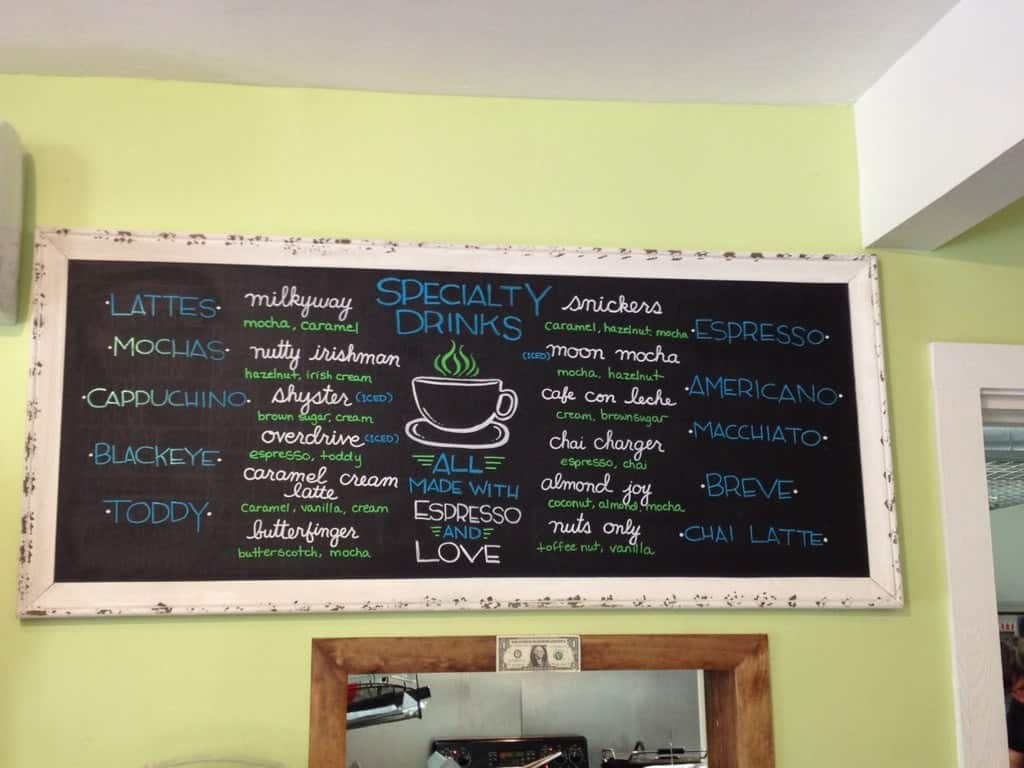 ·LATTES·
·MOCHAS·
·CAPPUCHINO·
·BLACKEYE·
·TODDY·
milkyway
mocha, caramel
nutty irishman
hazelnut, irish cream
shyster (ICED)
brown sugar, cream
overdrive (ICED)
espresso, toddy
caramel cream
latte
caramel, vanilla, cream
butterfinger
butterscotch, mocha
SPECIALTY
DRINKS
ALL
MADE WITH
ESPRESSO
AND
LOVE
snickers
caramel, hazelnut, mocha
(ICED) moon mocha
mocha, hazelnut
cafe con leche
cream, brown sugar
chai charger
espresso, chai
almond joy
coconut, almond, mocha
nuts only
toffee nut, vanilla
·ESPRESSO·
·AMERICANO·
·MACCHIATO·
·BREVE·
·CHAI LATTE·